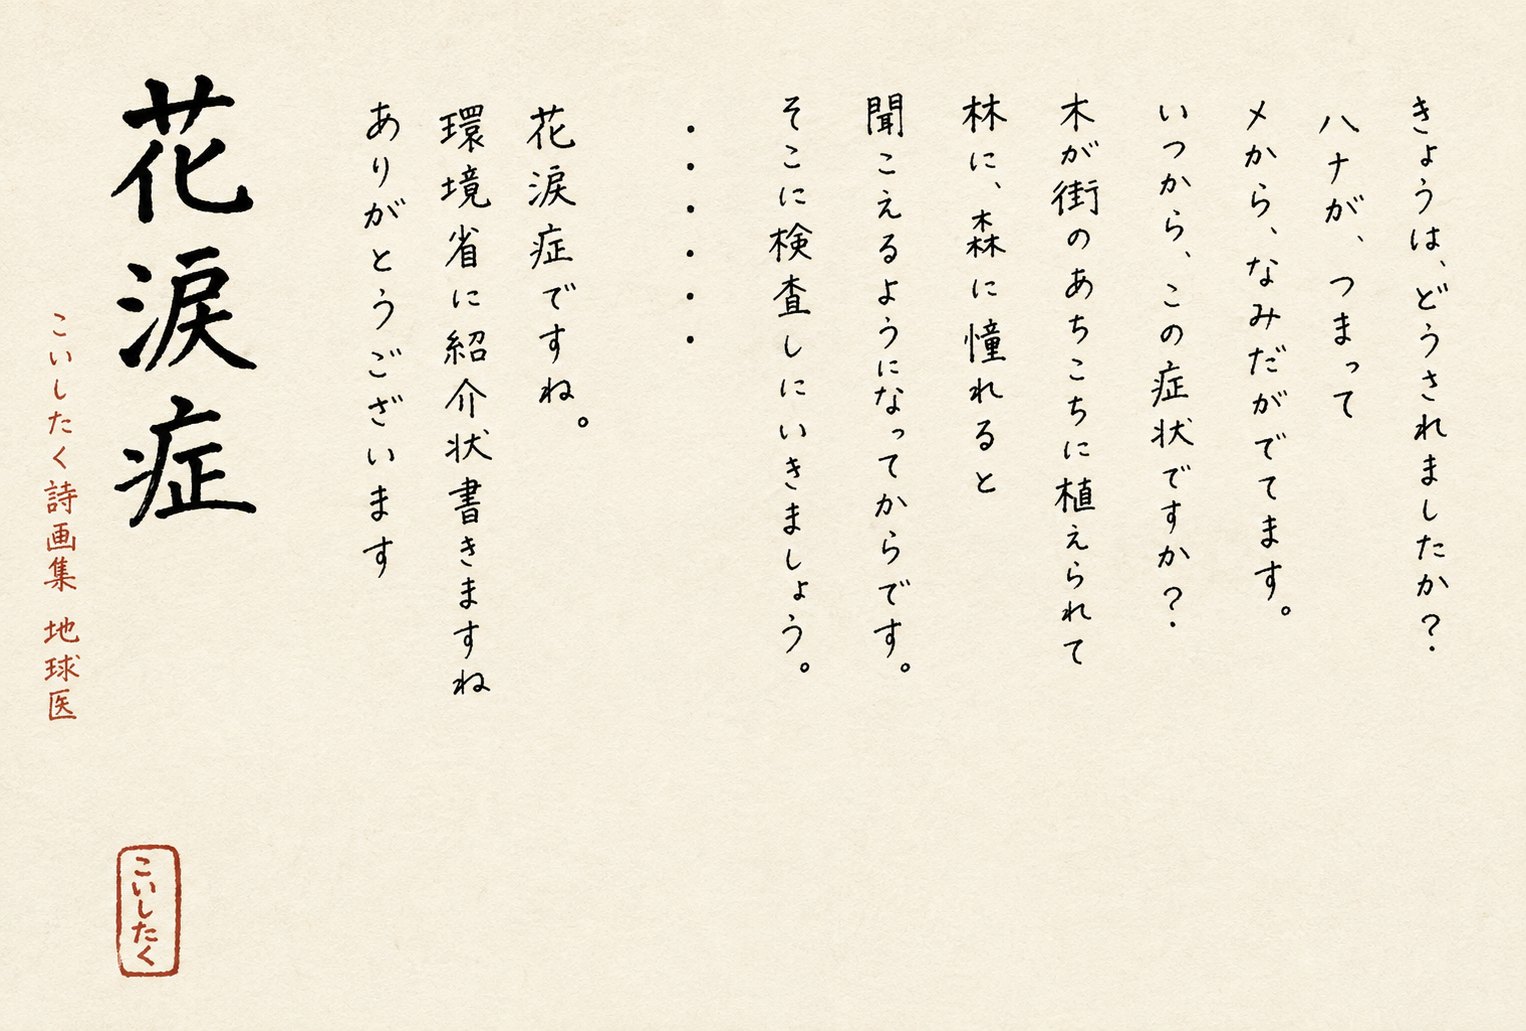 きょうは、どうされましたか?
ハナが、つまって
メから、なみだがでてます。
いつから、この症状ですか?
木が街のあちこちに植えられて
林に、森に憧れると
聞こえるようになってからです。
そこに検査しにいきましょう。
・・・・・・
花涙症ですね。
環境省に紹介状書きますね
ありがとうございます
花涙症
こいしたく詩画集 地球医
こいしたく